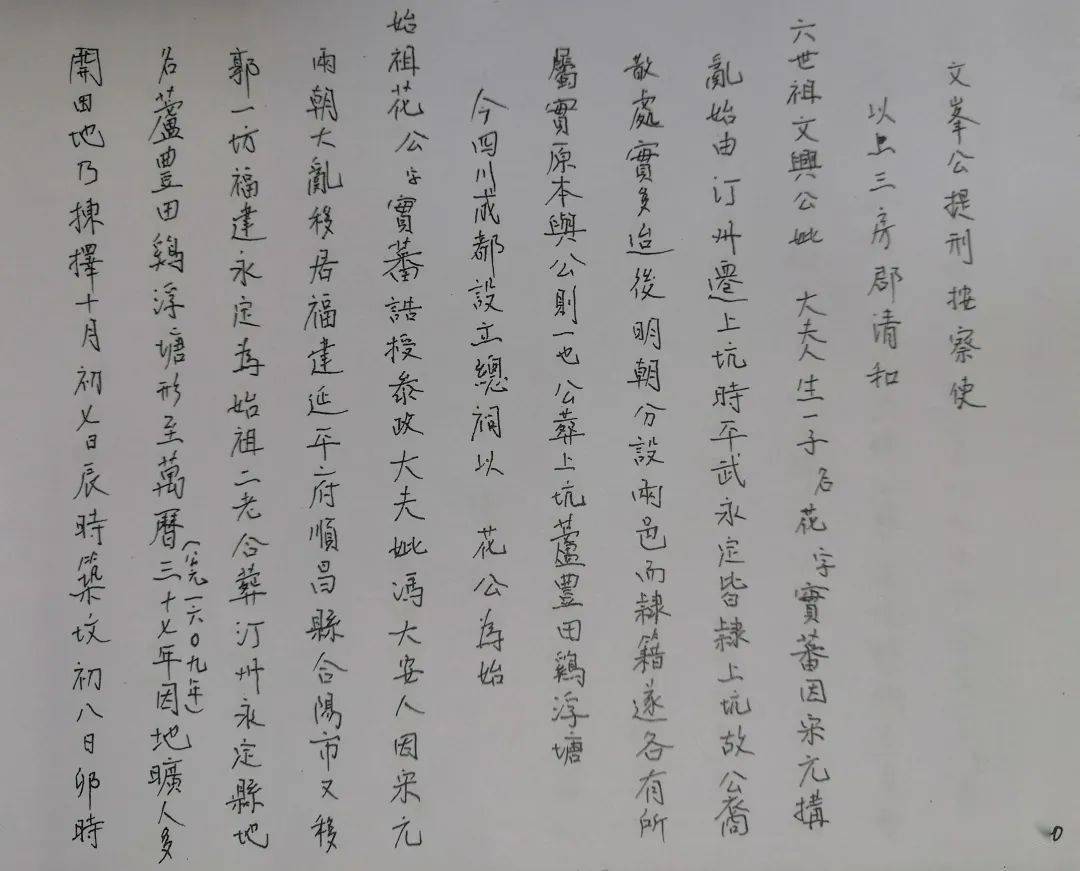 文峯公提刑按察使
以上三房郡清和
六世祖文興公妣 大夫人生一子名花字實蕃因宋元搆
亂始由汀州遷上坑時平武永定皆隸上坑故公裔
散處實多迨後明朝分設兩邑而隸籍遂各有所
屬實原本與公則一也公葬上坑蘆豐田鷄浮塘
今四川成都設立總祠以 花公為始
始祖花公字實蕃誥授叅政大夫妣馮大安人因宋元
兩朝大亂移居福建延平府順昌縣合陽市又移
郭一坊福建永定為始祖二老合葬汀州永定縣地
名蘆豊田鷄浮塘形至萬曆三十七年(公元一六0九年)因地曠人多
開田地乃揀擇十月初七日辰時築坟初八日卯時